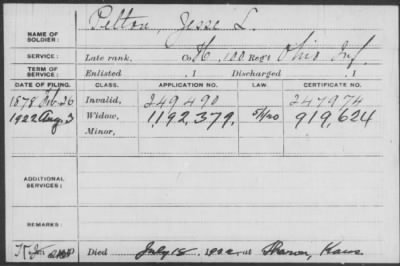 NAME OF SOLDIER: Pelton, Jesse L.
SERVICE: Late rank, Co. H, 100 Reg't Ohio Inf.
TERM OF SERVICE: Enlisted , 1 Discharged , 1
DATE OF FILING. CLASS. APPLICATION NO. LAW. CERTIFICATE NO.
1878 Feb. 26 Invalid, 249490 247974
1922 Aug 3 Widow, 1,192,379. 5/1/20 919,624
Minor,
ADDITIONAL SERVICES:
REMARKS:
Died July 18, 1922, at Sharon, Kans